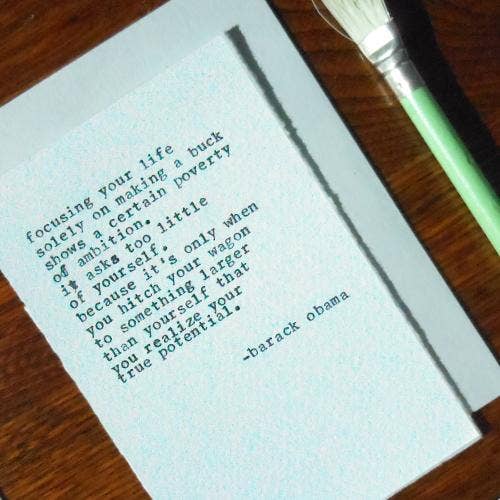 focusing your life
solely on making a buck
shows a certain poverty
of ambition.
it asks too little
of yourself.
because it's only when
you hitch your wagon
to something larger
than yourself that
you realize your
true potential.
-barack obama